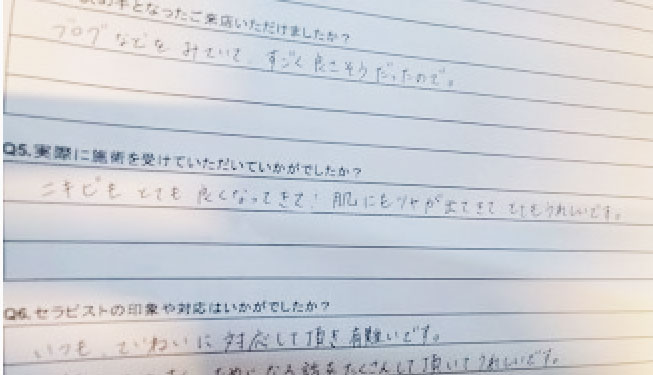 手となったご来店いただけましたか?
ブログなどをみていて、すごく良さそうだったので。
Q5.実際に施術を受けていただいていかがでしたか?
ニキビもとても良くなってきて!肌にもツヤが出てきてとてもうれしいです。
Q6.セラピストの印象や対応はいかがでしたか?
いつも、ていねいに対応して頂き有難いです。
ためになる話をたくさんして頂いてうれしいです。